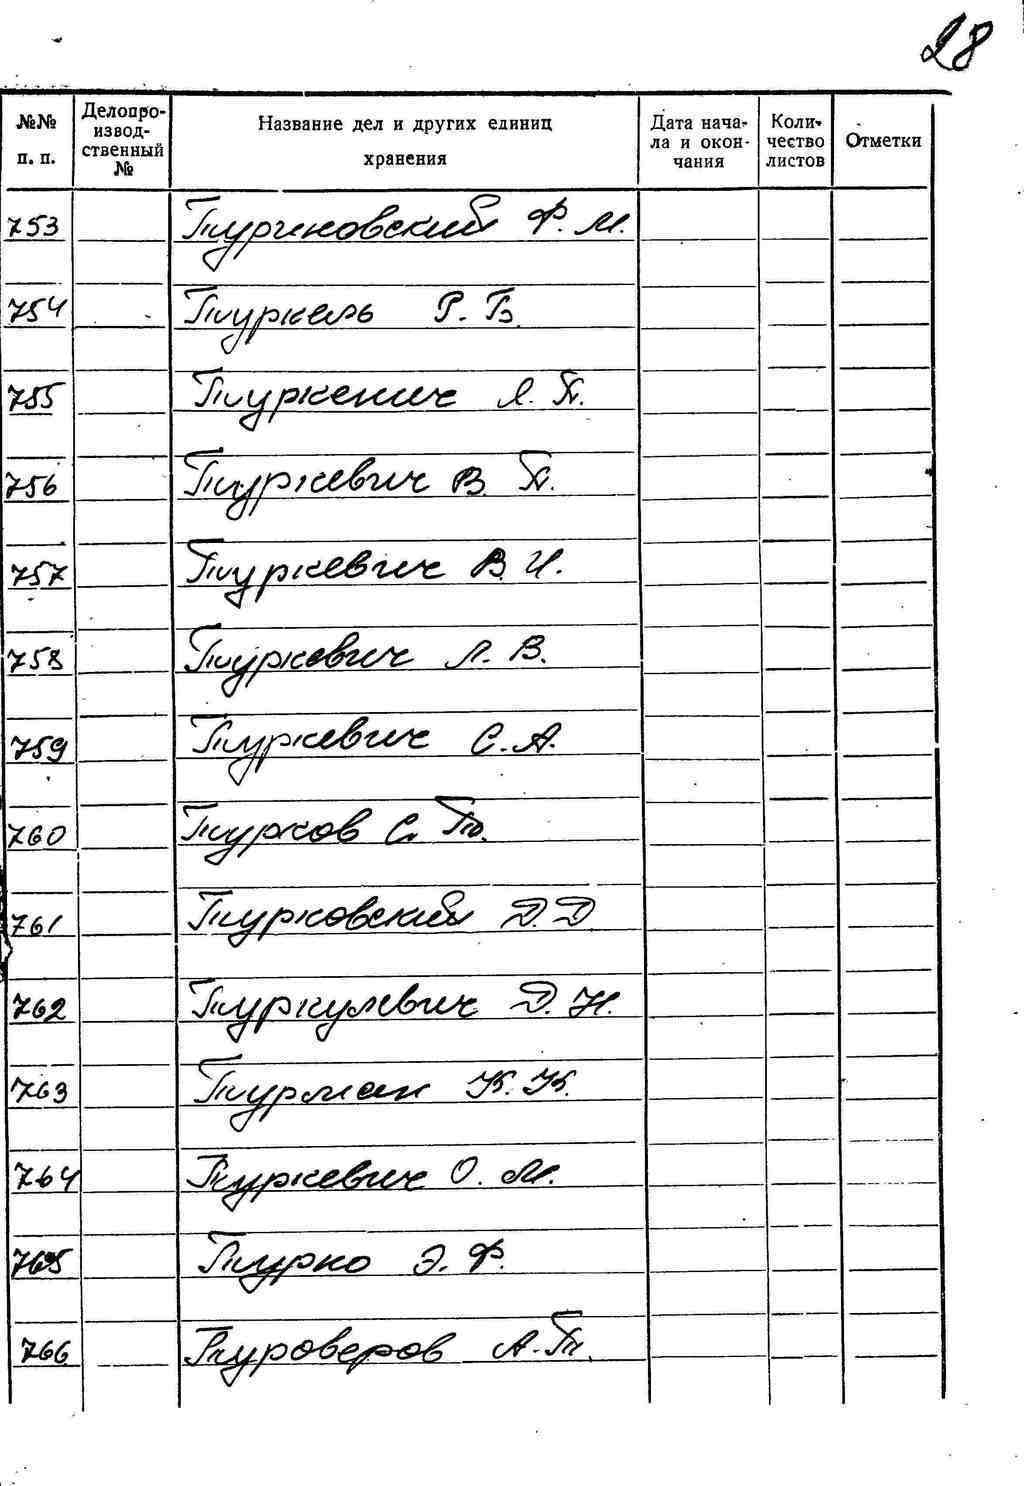 28
№№ п. п. Делопроизводственный № Название дел и других единиц хранения Дата начала и окончания Количество листов Отметки
753 Турчиновский Ф. М.
754 Туркель Р. Б.
755 Туркенич Л. П.
756 Туркевич В. П.
757 Туркевич В. И.
758 Туркевич Л. В.
759 Туркевич С. А.
760 Турков С.
761 Турковский Д. Д.
762 Туркулевич Д. Н.
763 Турман К. К.
764 Туркевич О. М.
765 Турко Э. Ф.
766 Туроверов А.